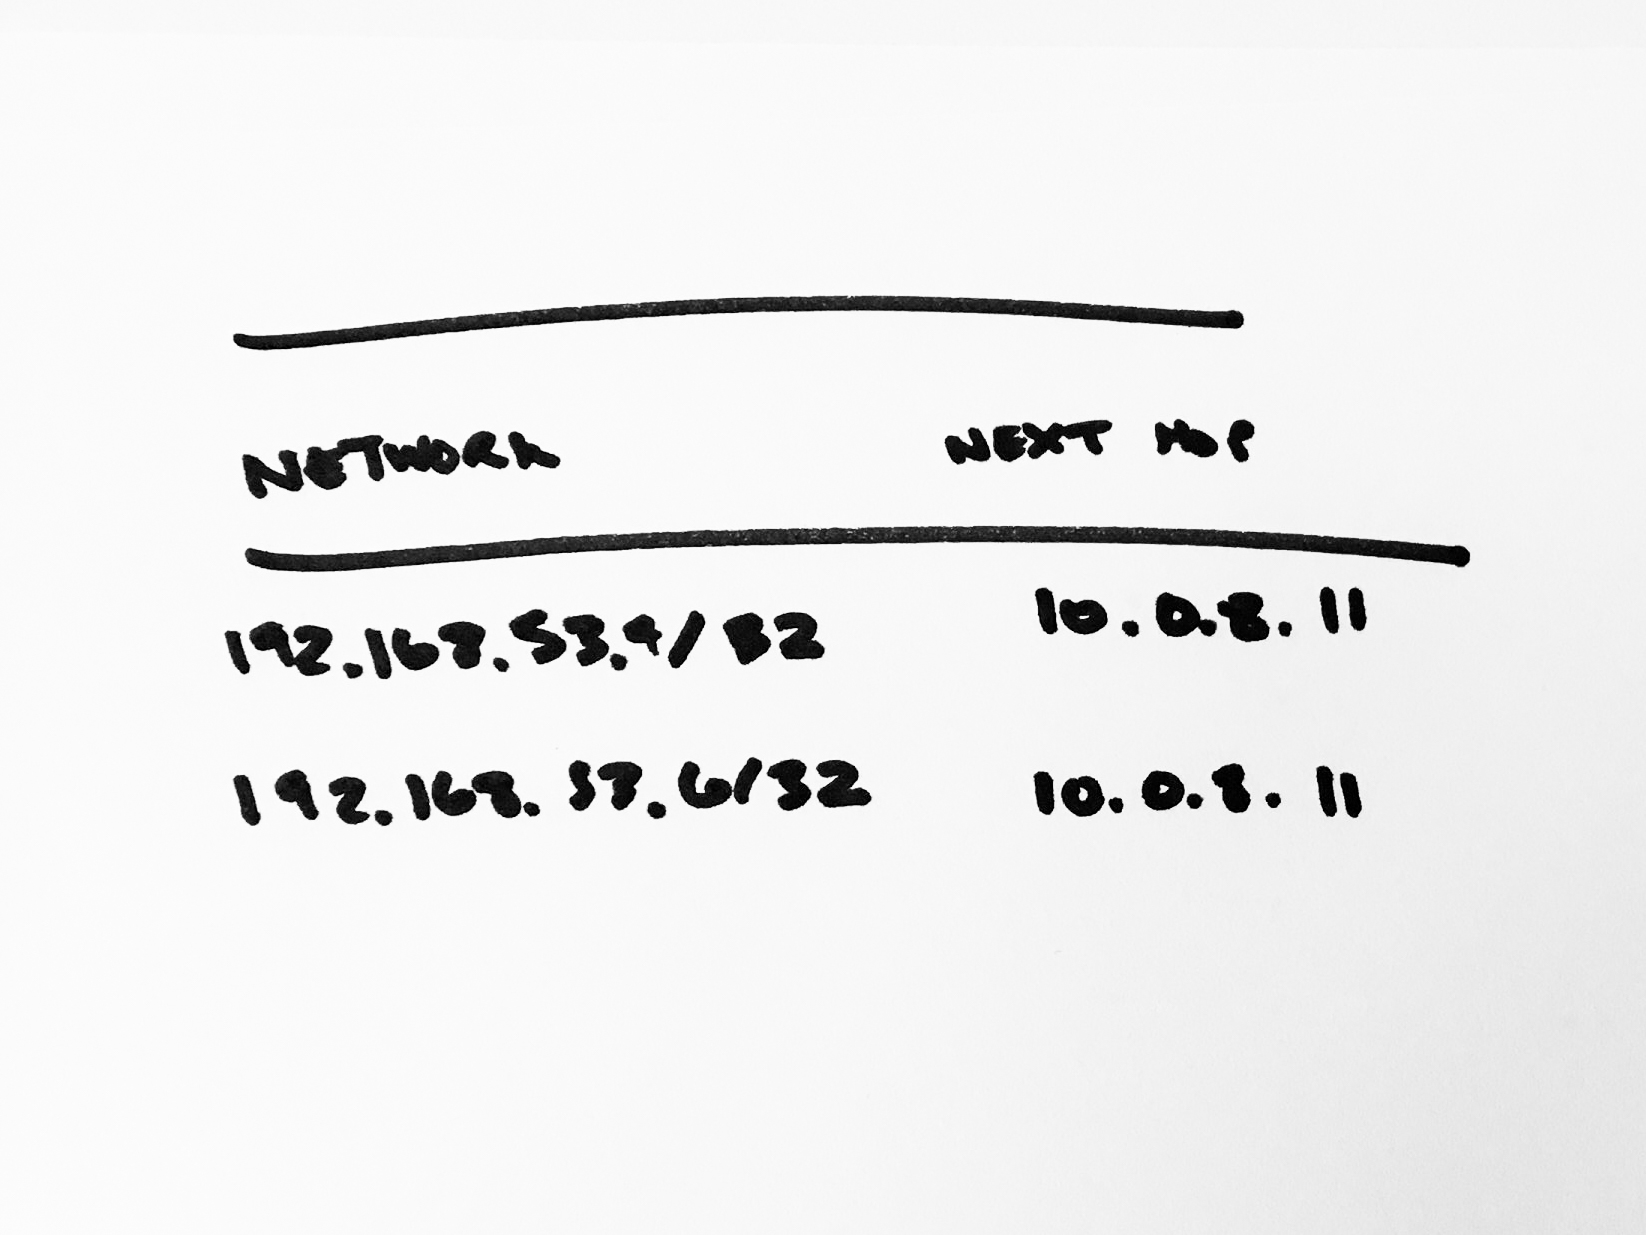 NETWORK NEXT HOP
192.168.53.4/32 10.0.8.11
192.168.53.6/32 10.0.8.11